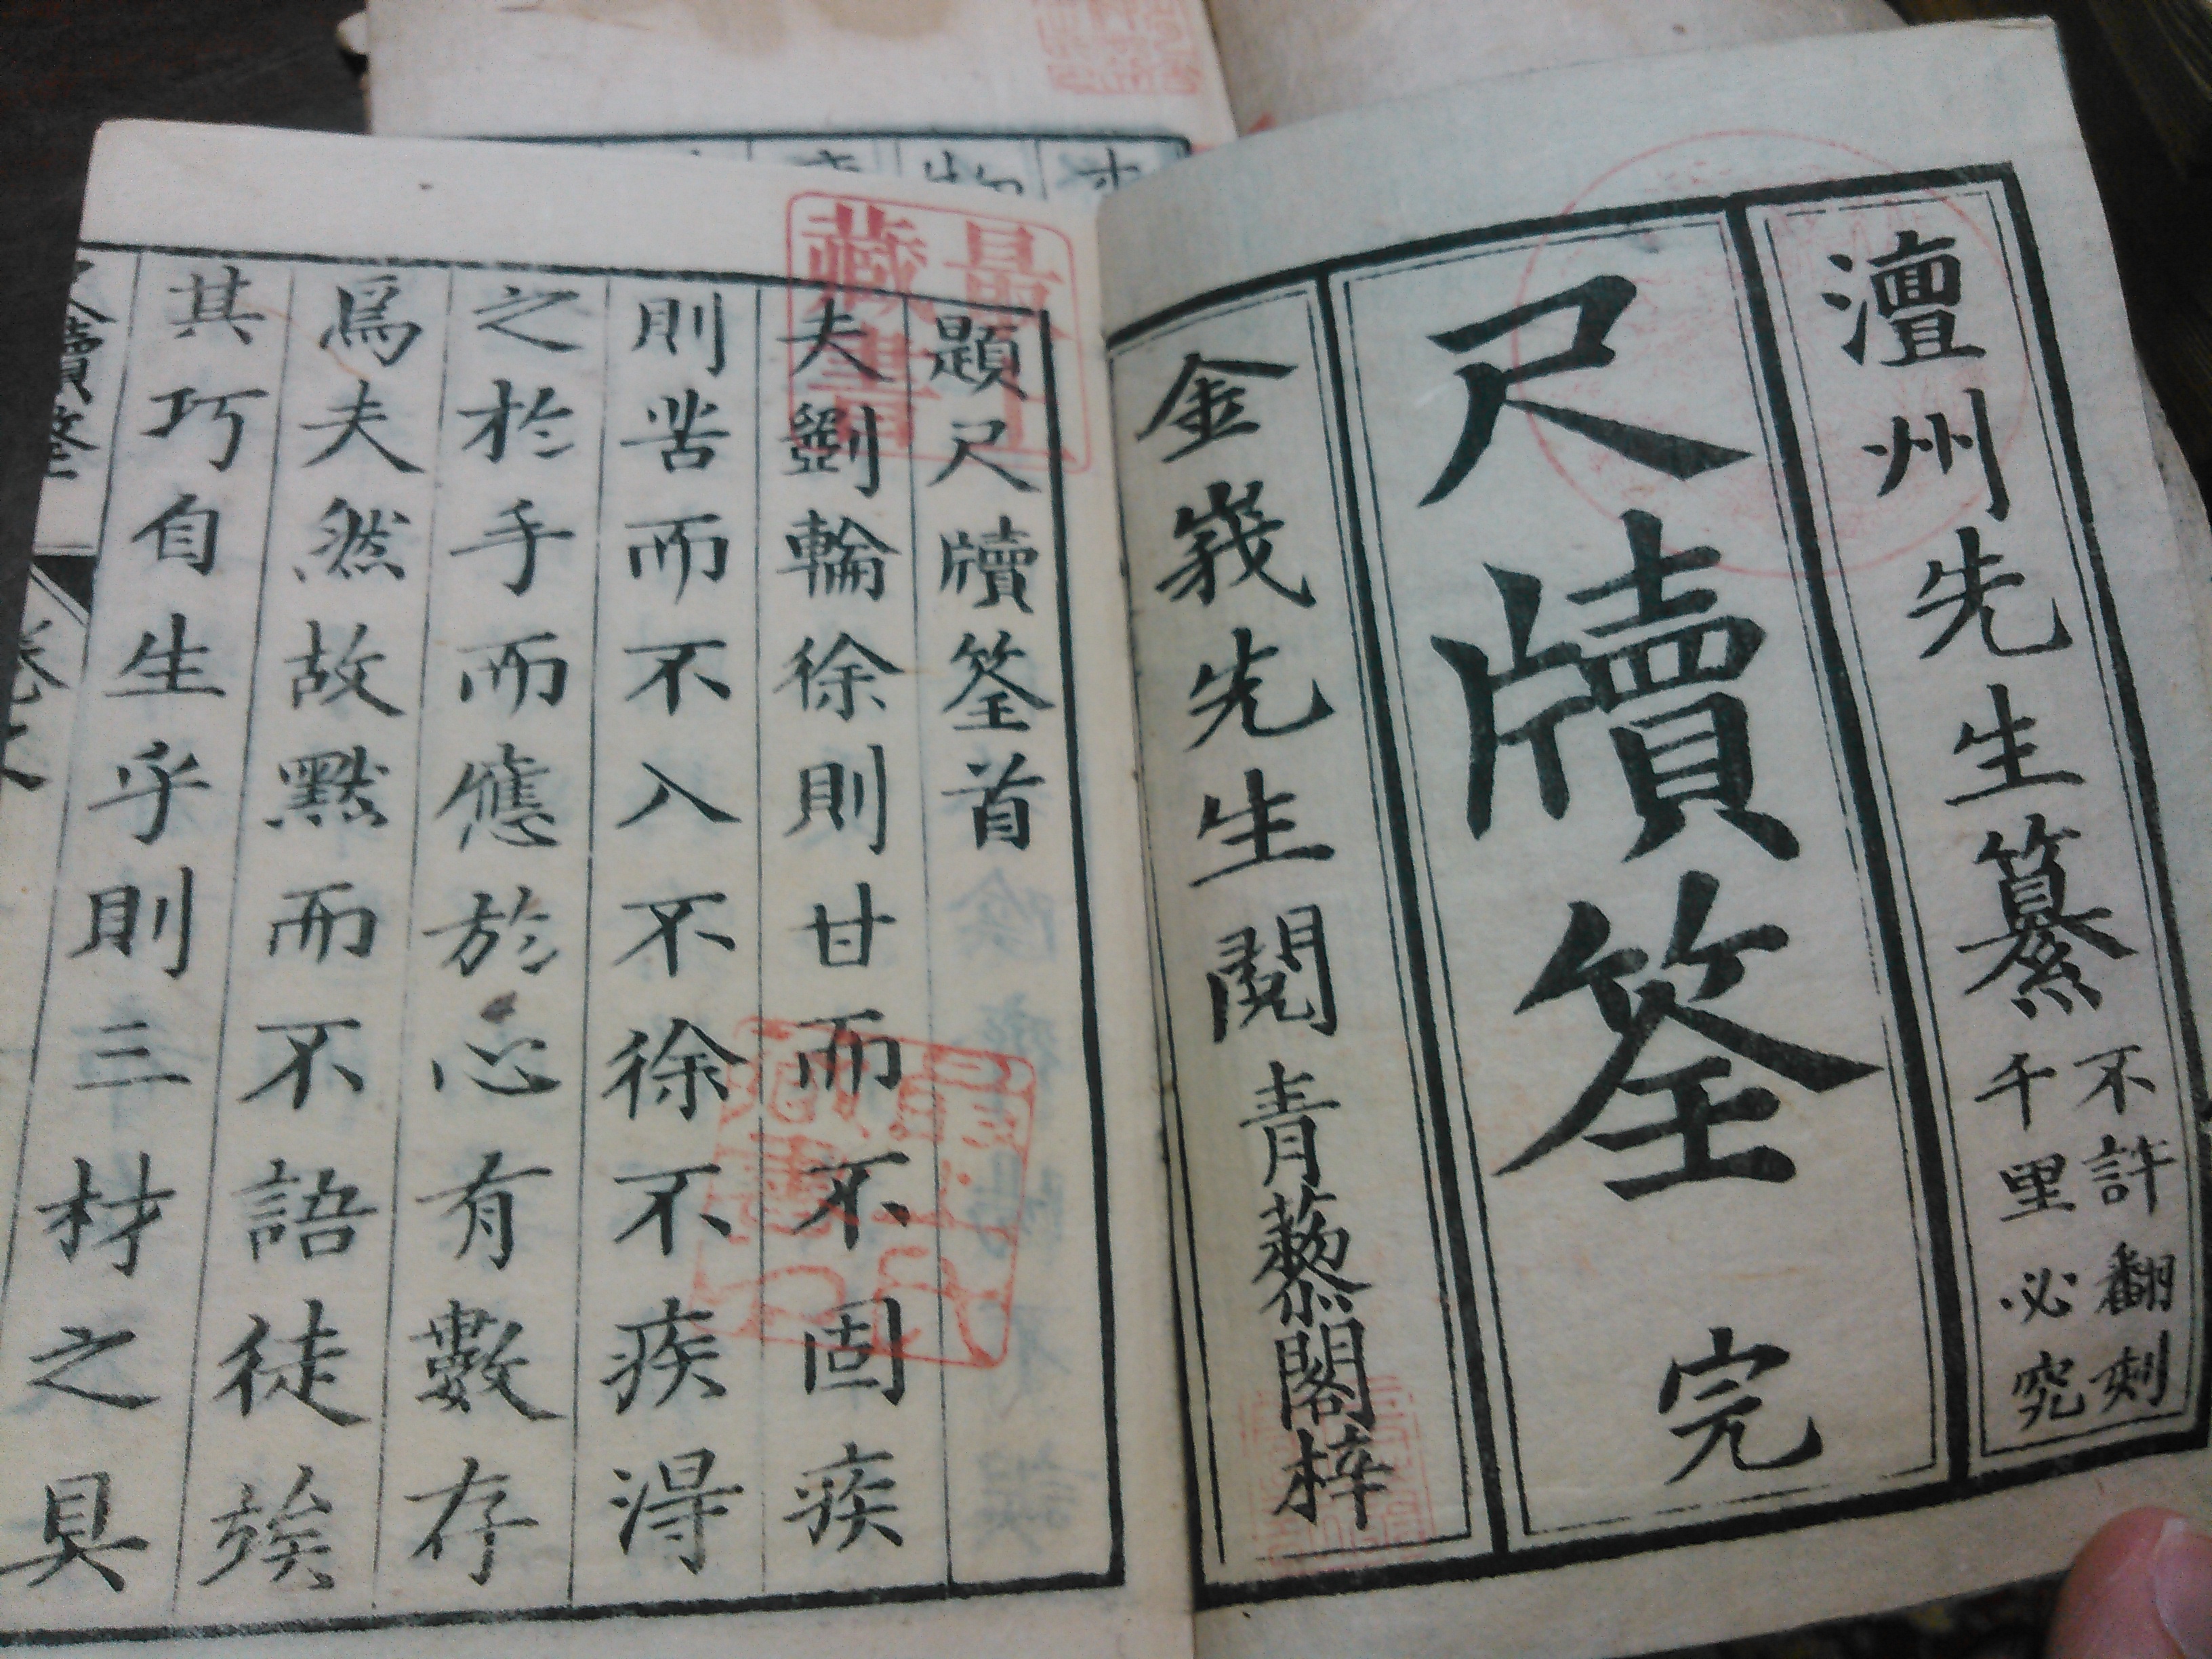 澶州先生纂
不許翻刻
千里必究
尺牘筌 完
金峩先生閱 青藜閣梓
題尺牘筌首
夫斵輪徐則甘而不固疾
則苦而不入不徐不疾淂
之於手而應於心有數存
焉夫然故黙而不語徒竢
其巧自生乎則三材之具
藏書